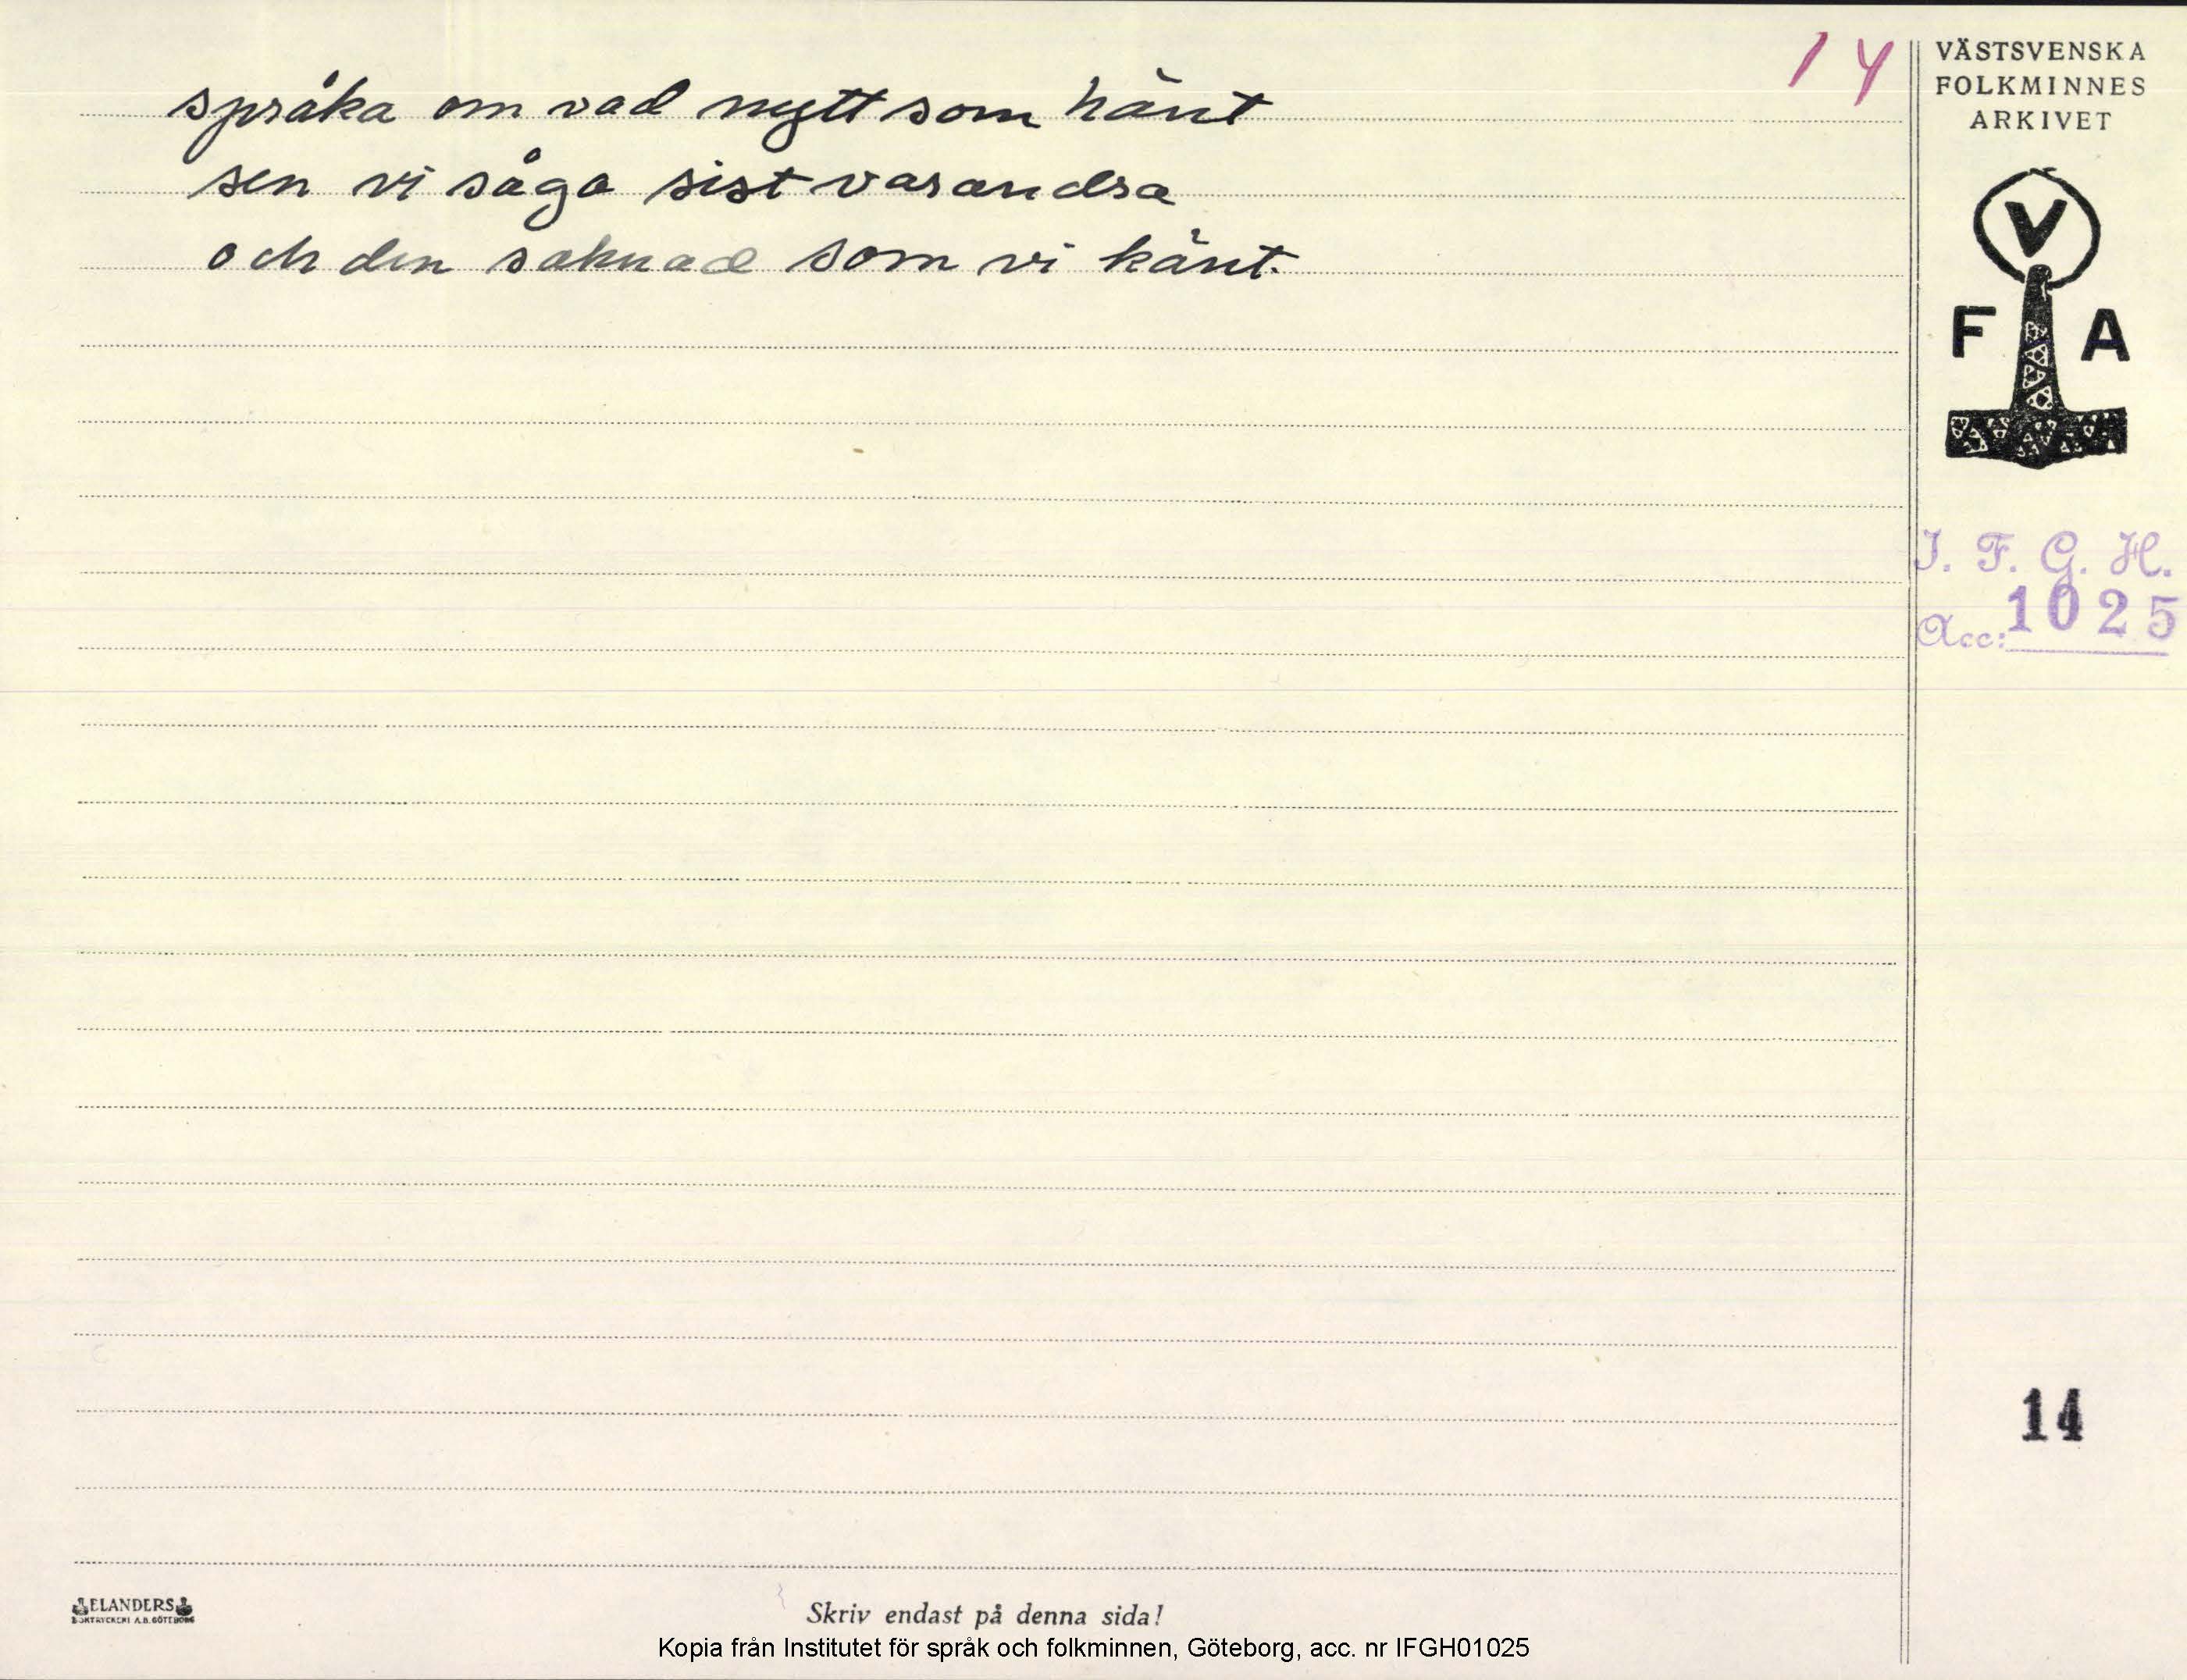 14
språka om vad nytt som hänt
sen vi såga sist varandra
och den saknad som vi känt.
VÄSTSVENSKA
FOLKMINNES
ARKIVET
V
F A
I. F. G. H.
Acc: 1025
14
ELANDERS
BOKTRYCKERI A.B. GÖTEBORG
Skriv endast på denna sida!
Kopia från Institutet för språk och folkminnen, Göteborg, acc. nr IFGH01025